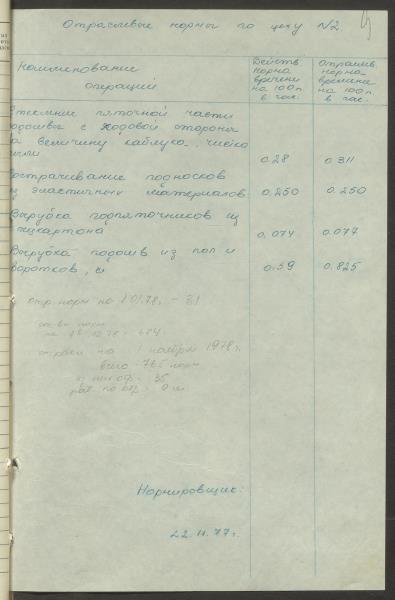 Отраслевые нормы по цеху №2.
Наименование операций
Действ норма времени на 100 п. в час.
Отрасл. норма времени на 100 п. в час.
пяточной части
подошвы с ходовой стороны
на величину каблука, чистка
0.28 0.311
подносков
из эластичных материалов 0.250 0.250
Вырубка подпяточников из
0.074 0.077
Вырубка подошв из пол и
воротков, 0.59 0.825
отр. норм на 1.01.78г. - 31
на 1 ноября 1978г.
всего - 765 норм
35
Нормировщик:
22.11.77г.